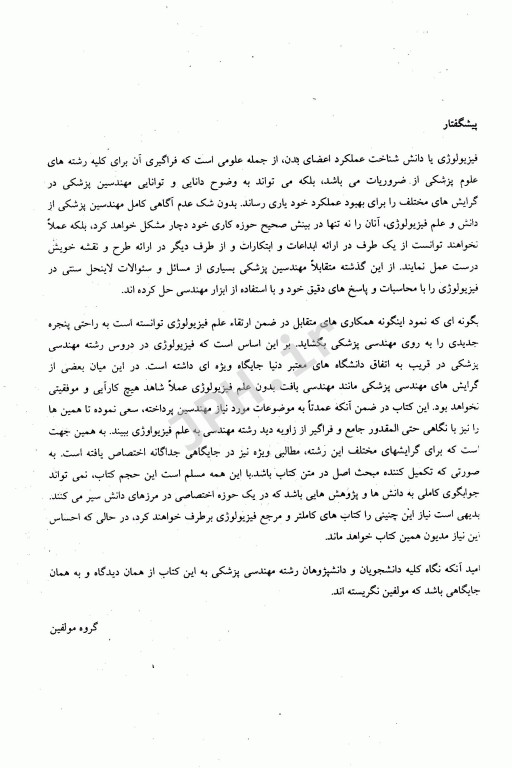 پیشگفتار
فیزیولوژی یا دانش شناخت عملکرد اعضای بدن، از جمله علومی است که فراگیری آن برای کلیه رشته های
علوم پزشکی از ضروریات می باشد، بلکه می تواند به وضوح دانایی و توانایی مهندسین پزشکی در
گرایش های مختلف را برای بهبود عملکرد خود یاری رساند. بدون شک عدم آگاهی کامل مهندسین پزشکی از
دانش و علم فیزیولوژی، آنان را نه تنها در بینش صحیح حوزه کاری خود دچار مشکل خواهد کرد، بلکه عملاً
نخواهند توانست از یک طرف در ارائه ابداعات و ابتکارات و از طرف دیگر در ارائه طرح و نقشه خویش
درست عمل نمایند. از این گذشته متقابلاً مهندسین پزشکی بسیاری از مسائل و سئوالات لاینحل سنتی در
فیزیولوژی را با محاسبات و پاسخ های دقیق خود و با استفاده از ابزار مهندسی حل کرده اند.
بگونه ای که نمود اینگونه همکاری های متقابل در ضمن ارتقاء علم فیزیولوژی توانسته است به راحتی پنجره
جدیدی را به روی مهندسی پزشکی بگشاید. بر این اساس است که فیزیولوژی در دروس رشته مهندسی
پزشکی در قریب به اتفاق دانشگاه های معتبر دنیا جایگاه ویژه ای داشته است. در این میان بعضی از
گرایش های مهندسی پزشکی مانند مهندسی بافت بدون علم فیزیولوژی عملاً شاهد هیچ کارآیی و موفقیتی
نخواهد بود. این کتاب در ضمن آنکه عمدتاً به موضوعات مورد نیاز مهندسین پرداخته، سعی نموده تا همین ها
را نیز با نگاهی حتی المقدور جامع و فراگیر از زاویه دید رشته مهندسی به علم فیزیولوژی ببیند. به همین جهت
است که برای گرایشهای مختلف این رشته، مطالبی ویژه نیز در جایگاهی جداگانه اختصاص یافته است. به
صورتی که تکمیل کننده مبحث اصل در متن کتاب باشد.با این همه مسلم است این حجم کتاب، نمی تواند
جوابگوی کاملی به دانش ها و پژوهش هایی باشد که در یک حوزه اختصاصی در مرزهای دانش سیر می کنند.
بدیهی است نیاز این چنینی را کتاب های کاملتر و مرجع فیزیولوژی برطرف خواهند کرد، در حالی که احساس
این نیاز مدیون همین کتاب خواهد ماند.
امید آنکه نگاه کلیه دانشجویان و دانشپژوهان رشته مهندسی پزشکی به این کتاب از همان دیدگاه و به همان
جایگاهی باشد که مولفین نگریسته اند.
گروه مولفین
JPH.ir